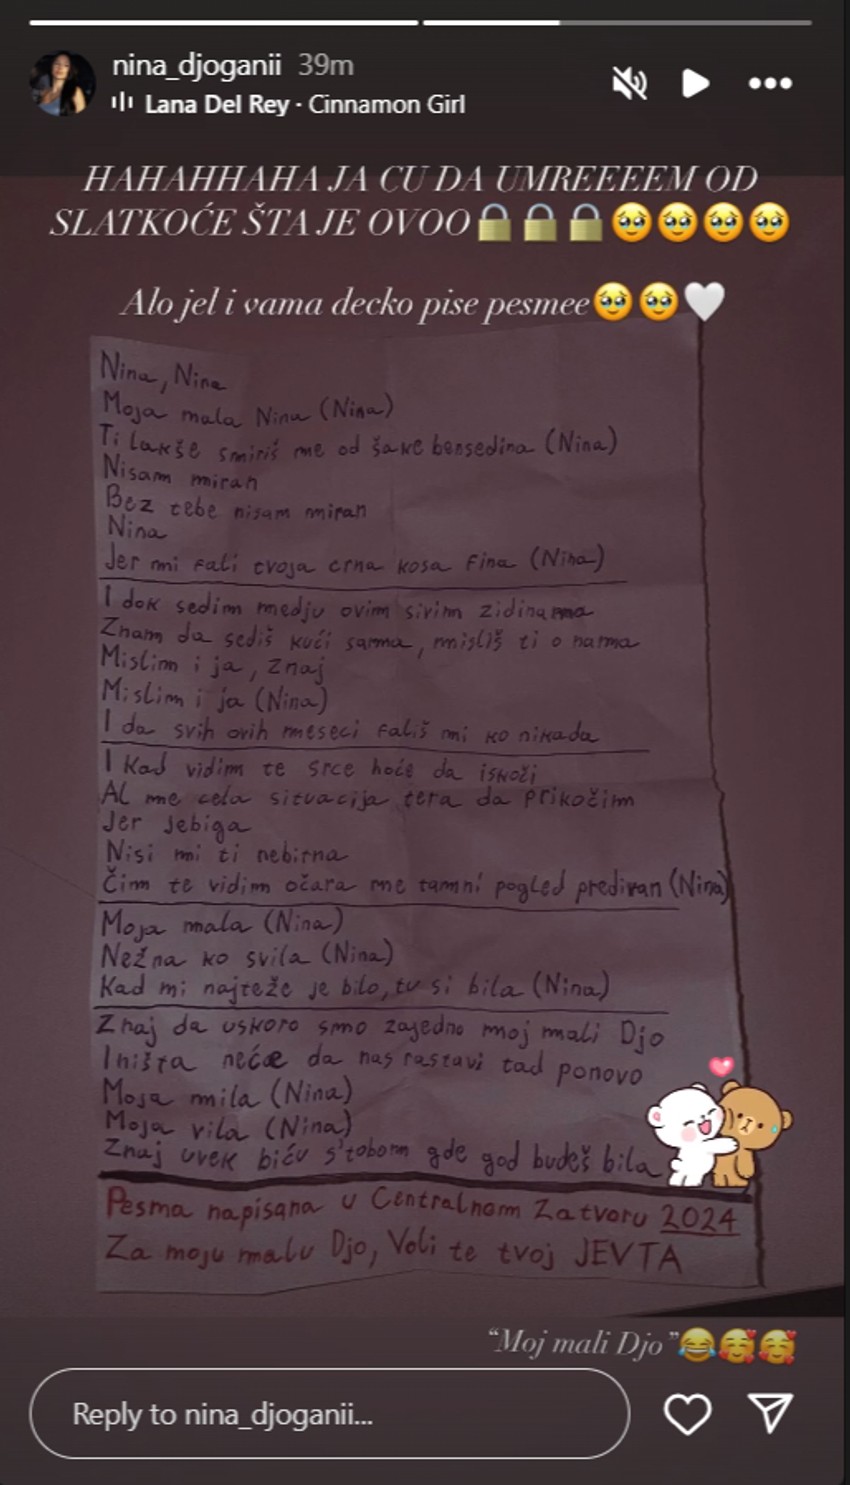 nina_djoganii 39m
Lana Del Rey · Cinnamon Girl
HAHAHHAHA JA CU DA UMREEEEEM OD
SLATKOĆE ŠTA JE OVOO🔒🔒🔒🥹🥹🥹🥹
Alo jel i vama decko pise pesmee🥹🥹🤍
Nina, Nina
Moja mala Nina (Nina)
Ti lakše smiriš me od šake bensedina (Nina)
Nisam miran
Bez tebe nisam miran
Nina
Jer mi fali tvoja crna kosa fina (Nina)
I dok sedim medju ovim sivim zidinama
Znam da sediš kući sama, misliš ti o nama
Mislim i ja, znaj
Mislim i ja (Nina)
I da svih ovih meseci fališ mi ko nikada
I kad vidim te srce hoće da iskoči
Al me cela situacija tera da prikočim
Jer jebiga
Nisi mi ti nebitna
Čim te vidim očara me tamni pogled predivan (Nina)
Moja mala (Nina)
Nežna ko svila (Nina)
Kad mi najteže je bilo, tu si bila (Nina)
Znaj da uskoro smo zajedno moj mali Djo
I ništa neće da nas rastavi tad ponovo
Moja mila (Nina)
Moja vila (Nina)
Znaj uvek biću s'tobom gde god budeš bila
Pesma napisana u Centralnom Zatvoru 2024
Za moju malu Djo, Voli te tvoj JEVTA
“Moj mali Djo”😂🥰🥰
Reply to nina_djoganii...